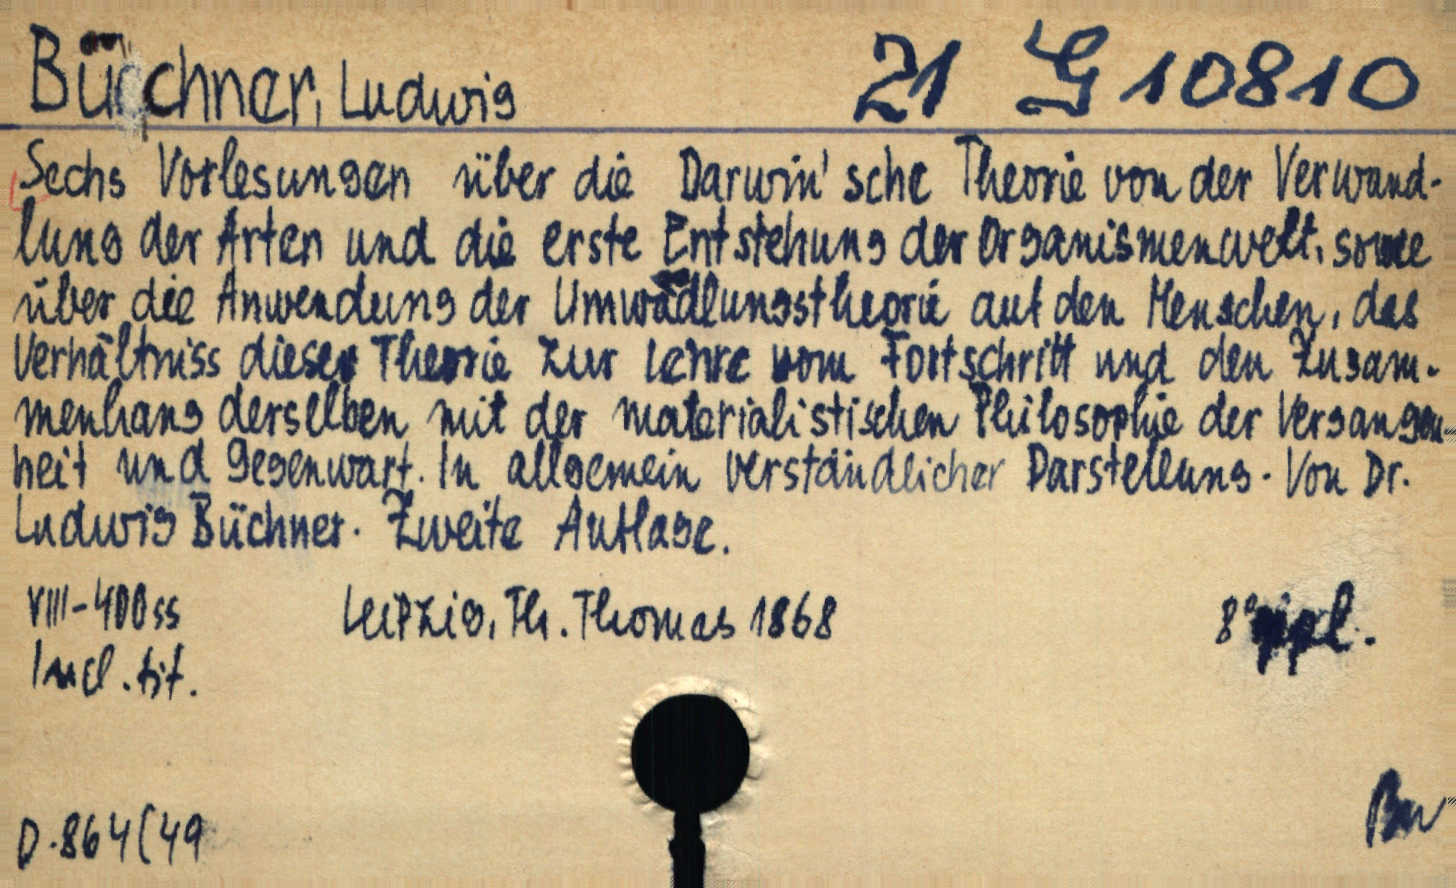 Büchner, Ludwig 21 G 10810
Sechs Vorlesungen über die Darwin'sche Theorie von der Verwand-
lung der Arten und die erste Entstehung der Organismenwelt, sowie
über die Anwendung der Umwadlungstheorie auf den Menschen, das
Verhältniss dieser Theorie zur Lehre vom Fortschritt und den Zusam-
menhang derselben mit der materialistischen Philosophie der Vergangen-
heit und Gegenwart. In allgemein verständlicher Darstellung. Von Dr.
Ludwig Büchner. Zweite Auflage.
VIII-400 ss Leipzig, Th. Thomas 1868 8°
Incl. tit.
D. 864/49